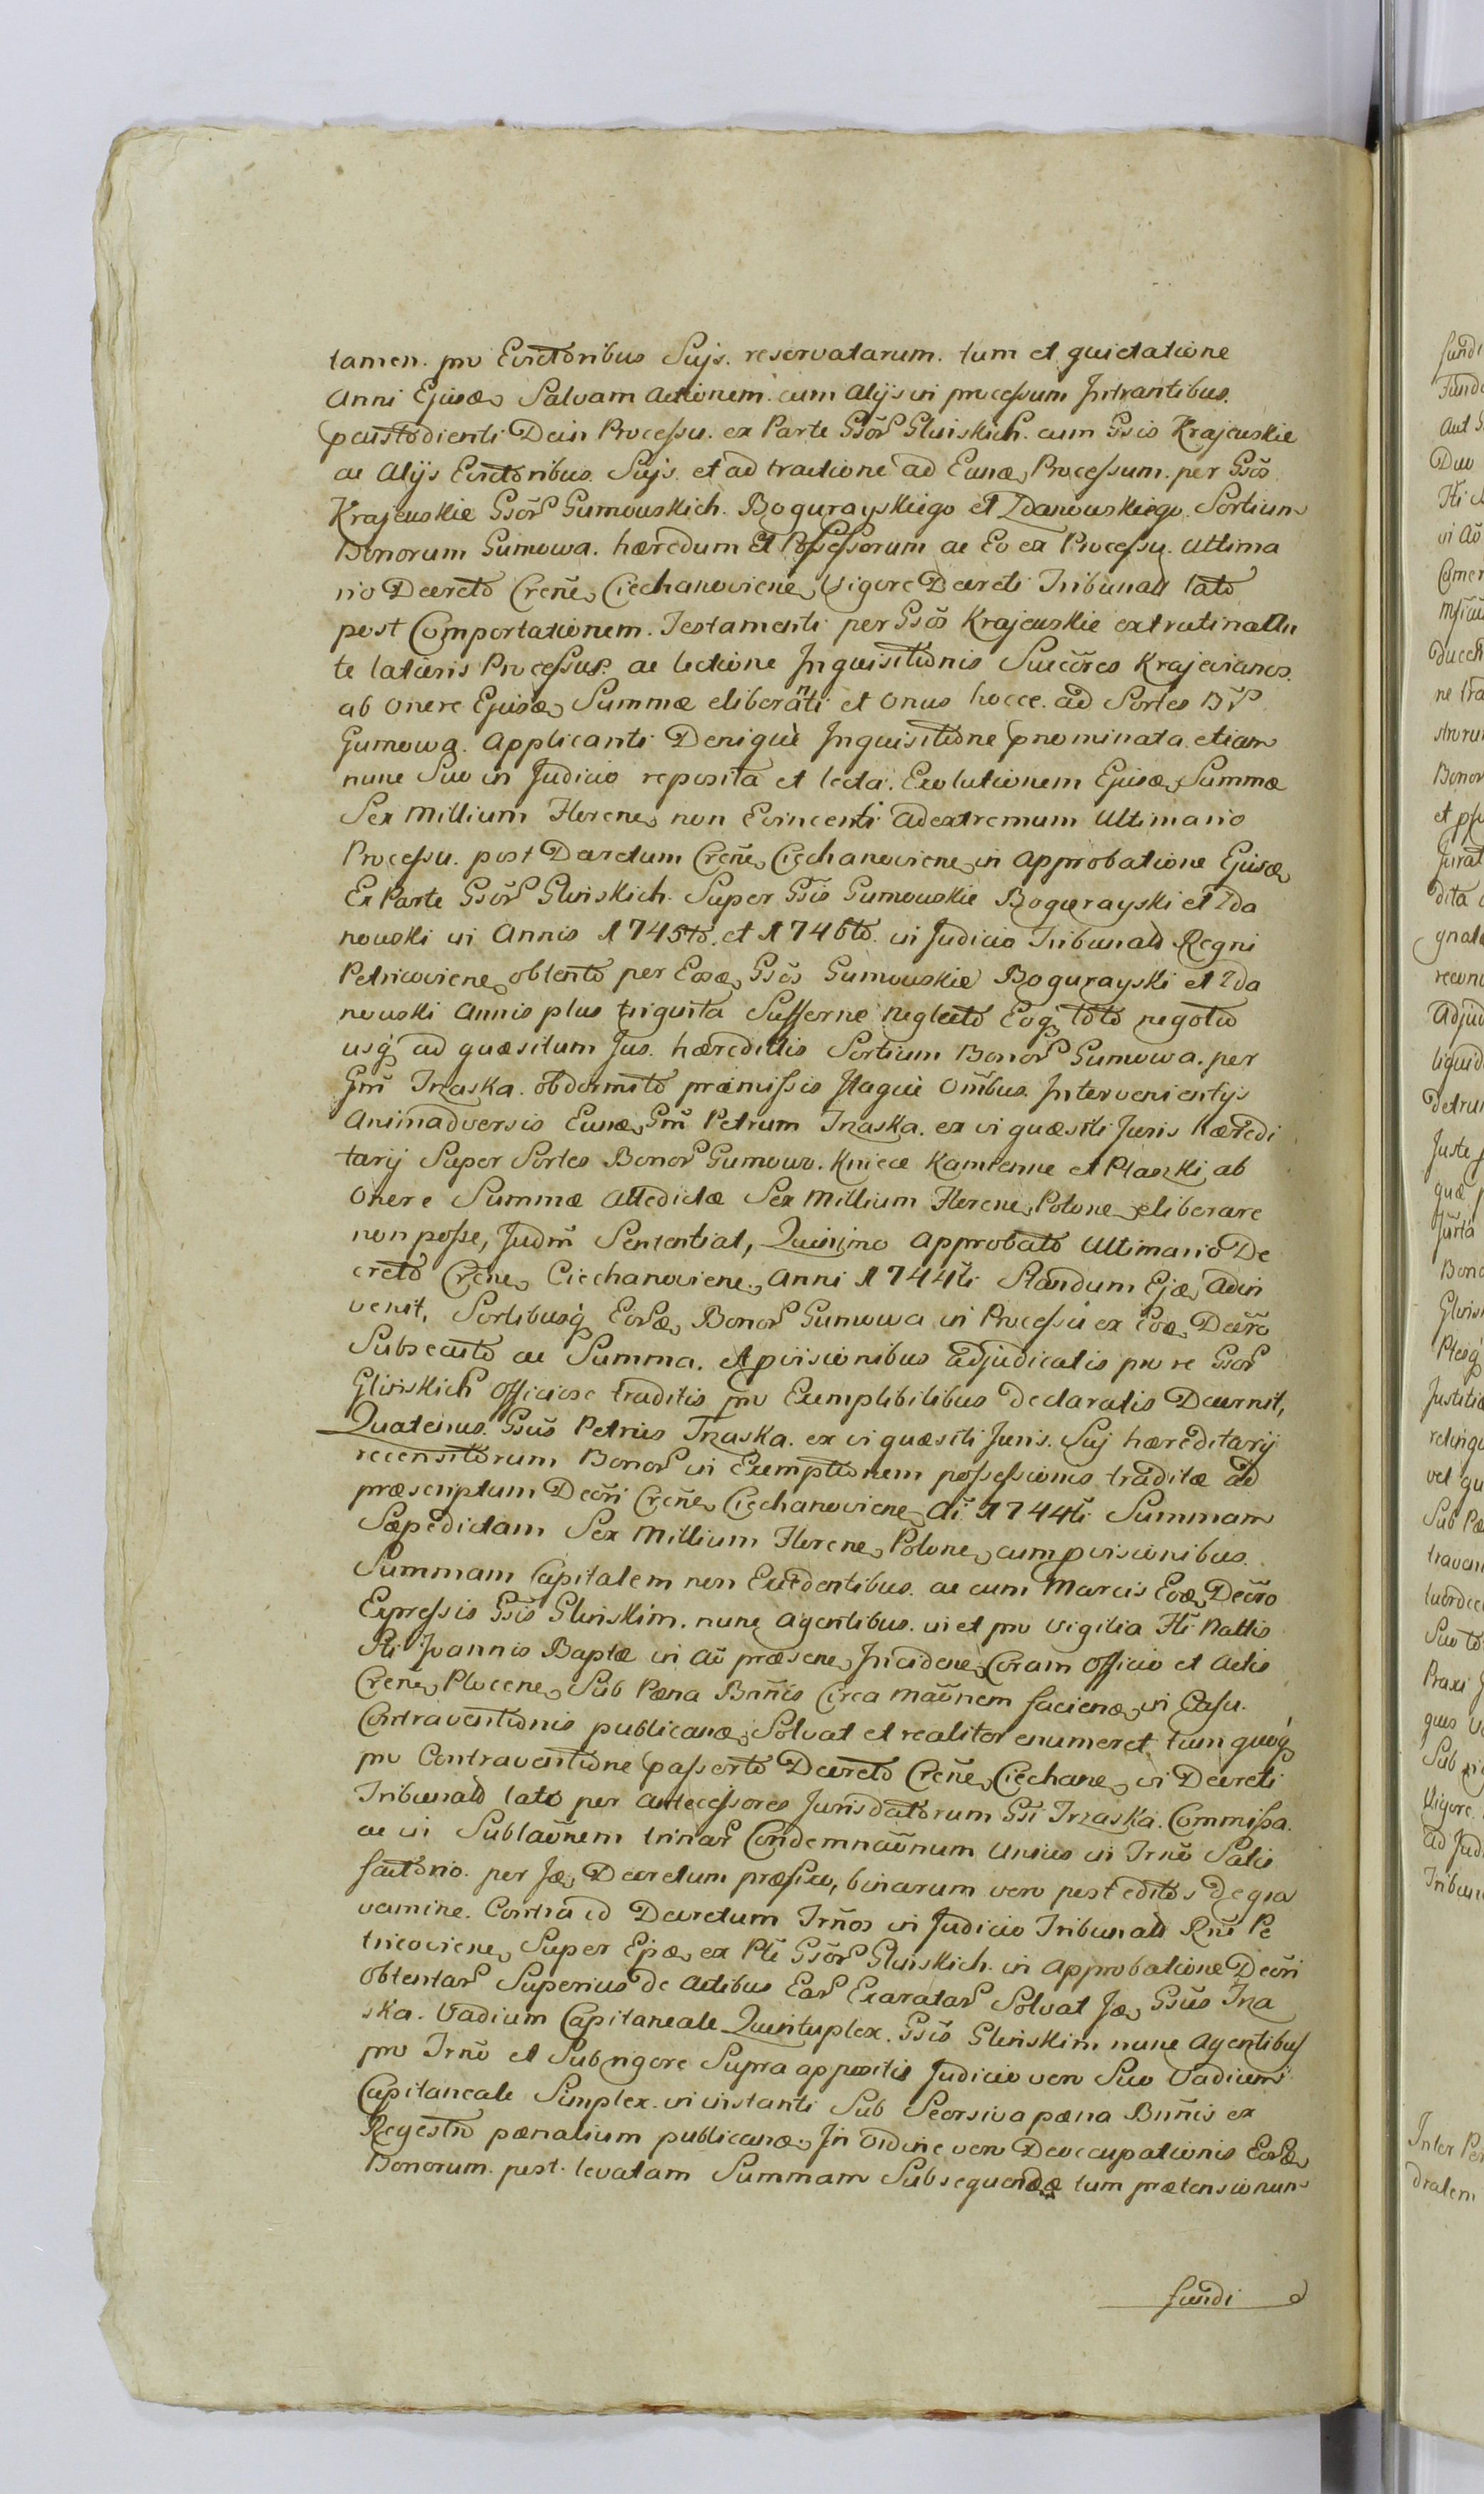 tamen. pro Evictoribus Sujs. reservatarum. tum et quietatione
Anni Ejusd. Salvam Actionem. cum Alijs in processum Intrantibus.
pcustodienti Dein Processu. ex Parte Gsor̃ Glinskich. cum Gsis Krajewskie
ac Alijs Evictoribus. Sujs. et ad tractione ad Eund. Processum. per Gsõs
Krajewskie Gsõr Gumowskich. Bogurayskiego et Zdanowskiego. Sortium
Bonorum Gumowa. hæredum Et Possessorum ac Eo ex Processu. Ultima
rio Decreto Creñe. Ciechanoviene. Vigore Decreti Tribunali lato
post Comportationem. Testamenti per Gsõs Krajewskie
te latioris Processus. ac lectione Inquisitionis Succõres Krajevianos.
ab onere Ejusd. Summæ eliberanti et onus hocce. ad Sortes
Gumowa. Applicanti Deniquè Inquisitione pnominata etiam
nunc Suo in Judicio reposita et lecta. Exolutionem Ejusd. Summæ
Sex Millium Florene. non Evincenti ad extremum Ultimario
Processu. post Decretum Creñe. Ciechanoviene. in Approbatione Ejusd.
Ex Parte Gsõr Glinskich. Super Gsis Gumowskie Bogurayski et Zda
nowski in Annis 1745to. et 1746to. in Judicio Tribunali Regni
Petricoviene. obtento per Eosd. Gsõs Gumowskie Bogurayski et Zda
nowski Annis plus triginta Sufferne neglecto Eoq. toto negotio
usq. ad quæsitum Jus. hæredittis Sortium Bonor̃ Gumowa. per
Gm̃ Trzaska. obdormito præmissis Itaquè Om̃bus. Intervenientijs
Animadversis Eund. Gm̃ Petrum Trzaska. ex vi quæsiti Juris hæredi
tarij Super Sortes Bonor̃ Gumowo. Kniece Kamienne et Ptaszki ab
Onere Summæ Attedictæ Sex Millium Florene. Polone. eliberare
non posse, Judm̃ Sententiat, Quinimo Approbato Ultimario De
creto Creñe. Ciechanoviene. Anni 1744ti Standum Ejd. Adin
venit, Sortibusq. Eor̃d. Bonor̃ Gumowa in Processu ex Eod. Decr̃o
Subsecuto ac Summa. et pvisionibus adjudicatis pro re Gsor̃
Glinskich officiose traditis pro Exemplibilibus declaratis Decernit,
Quatenus. Gsũs Petrus Trzaska. ex vi quæsiti Juris. Suj hæreditarij
recensitorum Bonor̃ in Exemptionem possessionis traditæ ad
præscriptum Decr̃i Creñe. Ciechanoviene. Aĩ 1744ti Summam
Sæpedictam Sex Millium Florene. Polone. cum pvisionibus.
Summam Capitalem non Excedentibus. ac cum Marcis Eod. Decr̃o
Expressis Gsĩs Glinskim. nunc Agentibus. in et pro Vigilia Fti Nattis
Sti Joannis Baptæ in Aõ præsene. Incidene. Coram Officio et Actis
Creñe. Plocene. Sub Pæna Bañis Circa Maõnem faciend. in Casu.
Contraventionis publicand. Solvat et realiter enumeret. tum quoq.
pro Contraventione passerto Decreto Creñe. Ciechane. vi Decreti
Tribunali lato per Antecessores Jurisdatorum Gsĩ Trzaska. Commissa.
ac in Sublaõnem trinar̃ Condemnaõnum Unius in Trñõ Satis
factorio. per Jd. Decretum præfixo, binarum vero post editos de gra
vamine. Contra id Decretum Trñõs in Judicio Tribunali Rñi Pe
tricoviene. Super Ejd. ex Pte Gsõr Glinskich. in Approbatione Decr̃i
obtentar̃ Superius de Actibus Ear̃ Exaratar̃ Solvat Jd. Gsũs Trza
ska. Vadium Capitaneale Quintuplex. Gsĩs Glinskim nunc Agentibus
pro Trñõ et Sub rigore Supra appositis Judicio vero Suo Vadium
Capitaneale Simplex. in instanti Sub Seorsiva pæna Bañis ex
Regestro pænalium publicand. In ordine vero Deoccupationis Eor̃d.
Bonorum. post. levatam Summam Subsequendæ tum prætensionum
fundi